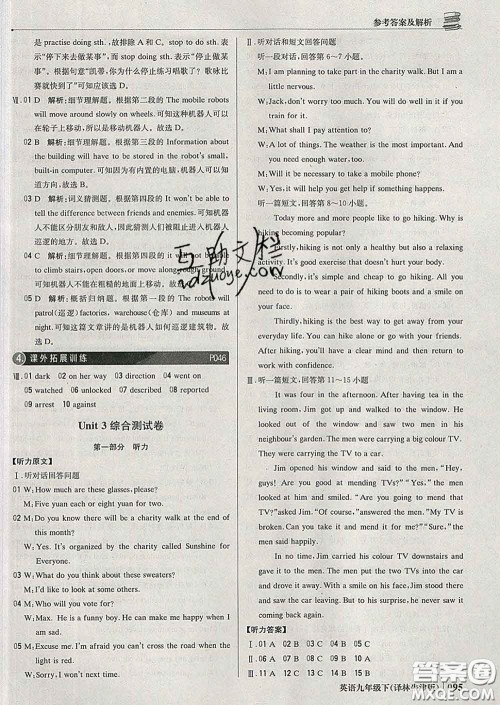 参考答案及解析
is practise doing sth.,故排除 A 和 C。stop to do sth. 表
示“停下来去做某事”,而 stop doing sth. 表示“停止做某
事”。根据语意“凯蒂,你为什么停止练习唱歌了?歌咏比
赛就快到了!”可知应选 D。
Ⅶ. 01 D 解析:细节理解题。根据第二段的 The mobile robots
will move around slowly on wheels. 可知,移动机器人可以
在轮子上移动,以此来移动机器人,故选 D。
02 B 解析:细节理解题。根据第三段的 Information about
the building will have to be stored in the robot's small,
built-in computer. 可知,因为有内置的电脑,机器人可以知
道往哪里走。故选 B。
03 D 解析:词义猜测题。根据第四段的 It won't be able to tell
the difference between friends and enemies. 可知,机器人
不能区分朋友和敌人,
巡逻的地方。故选 D。
04 C 解析:细节理解题。根据第四段的
to climb stairs, open doors or move along rough ground.
可知,
05 D 解析:概括归纳题。根据第一段的 The robots will
patrol(巡逻) factories, warehouse(仓库) and museums at
night. 可知,这篇文章讲的是机器人如何巡逻建筑物。故选 D。
4. 课外拓展训练 P046
Ⅷ. 01 dark 02 on her way 03 direction 04 went on
05 against 06 held 07 seen 08 downwards 09 reported
09 arrest 10 against
Unit 3 综合测试卷
第一部分 听力
【听力原文】
Ⅰ. 听对话回答问题
01 W: How much are these glasses, please?
M: Five yuan each and forty yuan for ten.
02 M: Do you know there will be a charity walk at the end of
this month?
W: Yes. It's organized by the charity called Sunshine for
Everyone.
03 W: What do you think about these sweaters?
M: I'd like to look at some others.
04 M: Who will you vote for?
W: Max. He is a funny boy. He can make me happy when I
am sad.
05 M: Excuse me. I'm afraid you can't cross the road when the
light is red.
W: Sorry, I won't.
Ⅱ. 听对话和短文回答问题
听一段对话,回答第 6~7 小题。
M: I am planning to take part in the charity walk. But I am a
little nervous.
W: Jack, don't worry too much. You will do well in it if you
train for it.
M: What else should I pay attention to?
W: Eating healthy food and sleeping well are most important.
And you need enough water, too.
M: Will it be necessary to take a mobile phone?
W: Yes, it will be helpful if you need help.
听一篇短文,回答第 8~10 小题。
Today more and more people like to go hiking. Why is
hiking becoming popular?
Firstly, hiking is not only a healthy but also a relaxing
activity. It's good exercise that doesn't hurt your body.
Secondly, it's simple and cheap to go hiking. All you
need to do is to wear a pair of hiking boots and a smile on
your face.
Thirdly, hiking is interesting when you do it with your
friends and family. You can enjoy the beautiful views
besides the exercise.
Finally, hiking can be done almost everywhere and
everyone can take part in it.
Ⅲ. 听一篇短文,回答第 11~15 小题。
It was a summer afternoon. After having tea in the
living room, Jim got up from the chair and walked to the
window. He looked out of the window and saw two men in his
neighbour's garden. The men were carrying a big colour TV.
Jim opened the window and said to the men, "Hey,
guys! Are you good at mending TVs?" "Yes," one of them
answered, "but why do you ask?" "My TV doesn't work,"
Jim said, "Could you please mend it for me?" "Sure," the men
said.
Jim then carried his colour TV downstairs and
gave it to the men. The men put the TVs into the car and
drove away. Jim waited and waited, but they didn't
come back.
【听力答案】
Ⅰ. 01 A 02 B 03 C 04 C 05 B
Ⅱ. 06 A 07 A 08 B 09 C 10 C
Ⅲ. 11 A 12 A 13 B 14 B 15 C
英语九年级下(译林牛津版) 095
互助文档
hdzuoye.com
答案圈
MXQE.COM